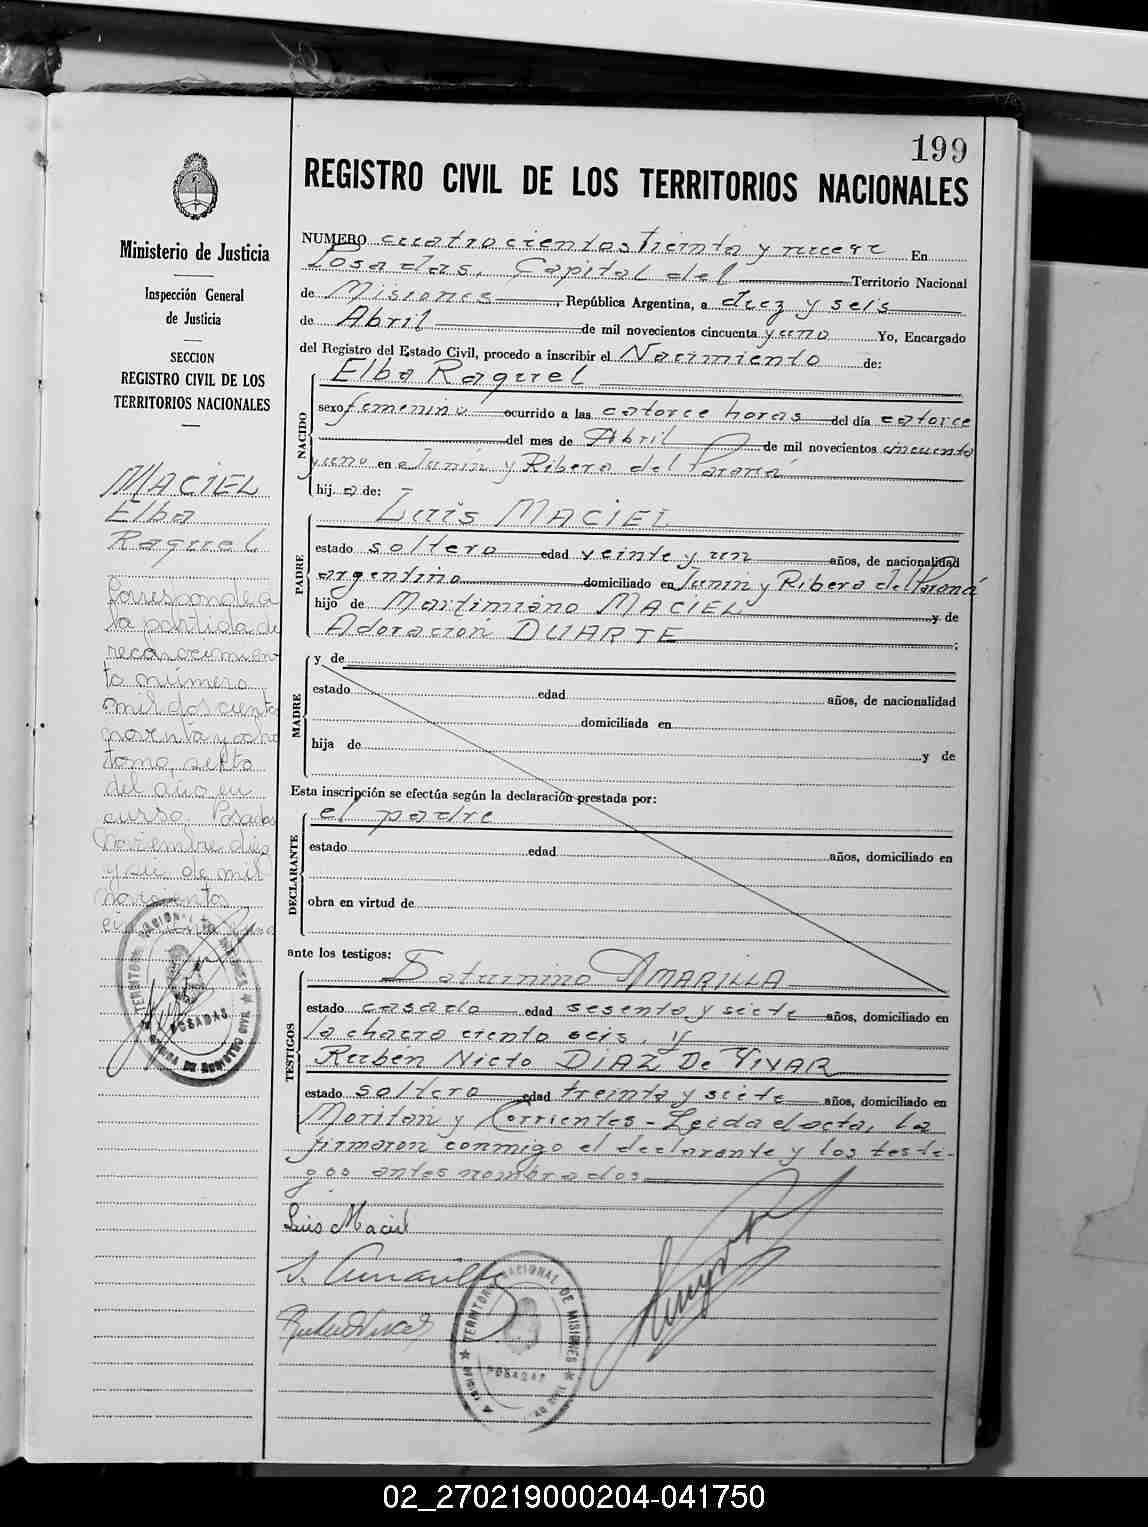 199
REGISTRO CIVIL DE LOS TERRITORIOS NACIONALES
Ministerio de Justicia
Inspección General
de Justicia
SECCION
REGISTRO CIVIL DE LOS
TERRITORIOS NACIONALES
MACIEL
Elba
Raquel
Corresponde a
la partida de
reconocimien
to número
mil dos cientos
noventa y ocho
tomo, sexto
del año en
curso. Posadas
Noviembre diez
y seis de mil
novecientos
NUMERO cuatrocientos treinta y nueve En
Posadas, Capital del Territorio Nacional
de Misiones, República Argentina, a diez y seis
de Abril de mil novecientos cincuenta y uno Yo, Encargado
del Registro del Estado Civil, procedo a inscribir el Nacimiento de:
NACIDO
Elba Raquel
sexo femenino ocurrido a las catorce horas del día catorce
del mes de Abril de mil novecientos cincuenta
y uno en Junin y Ribera del Paraná
hija de:
PADRE
Luis MACIEL
estado soltero edad veinte y un años, de nacionalidad
argentino domiciliado en Junin y Ribera del Paraná
hijo de Martimiano MACIEL y de
Adoración DUARTE;
MADRE
y de
estado edad años, de nacionalidad
domiciliada en
hija de y de
Esta inscripción se efectúa según la declaración prestada por:
DECLARANTE
el padre
estado edad años, domiciliado en
obra en virtud de
ante los testigos:
TESTIGOS
Saturnino AMARILLA
estado casado edad sesenta y siete años, domiciliado en
la chacra ciento seis, y
Ruben Nicto DIAZ De VIVAR
estado soltero edad treinta y siete años, domiciliado en
Moritán y Corrientes - Leida el acta, la
firmaron conmigo el declarante y los testi-
gos antes nombrados
Luis Maciel
S. Amarilla
TERRITORIO NACIONAL DE MISIONES
POSADAS
TERRITORIO NACIONAL DE MISIONES
OFICINA DE REGISTRO CIVIL
POSADAS
02_270219000204-041750